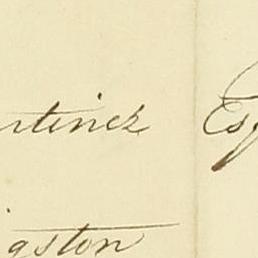 rtinez Esq
gston